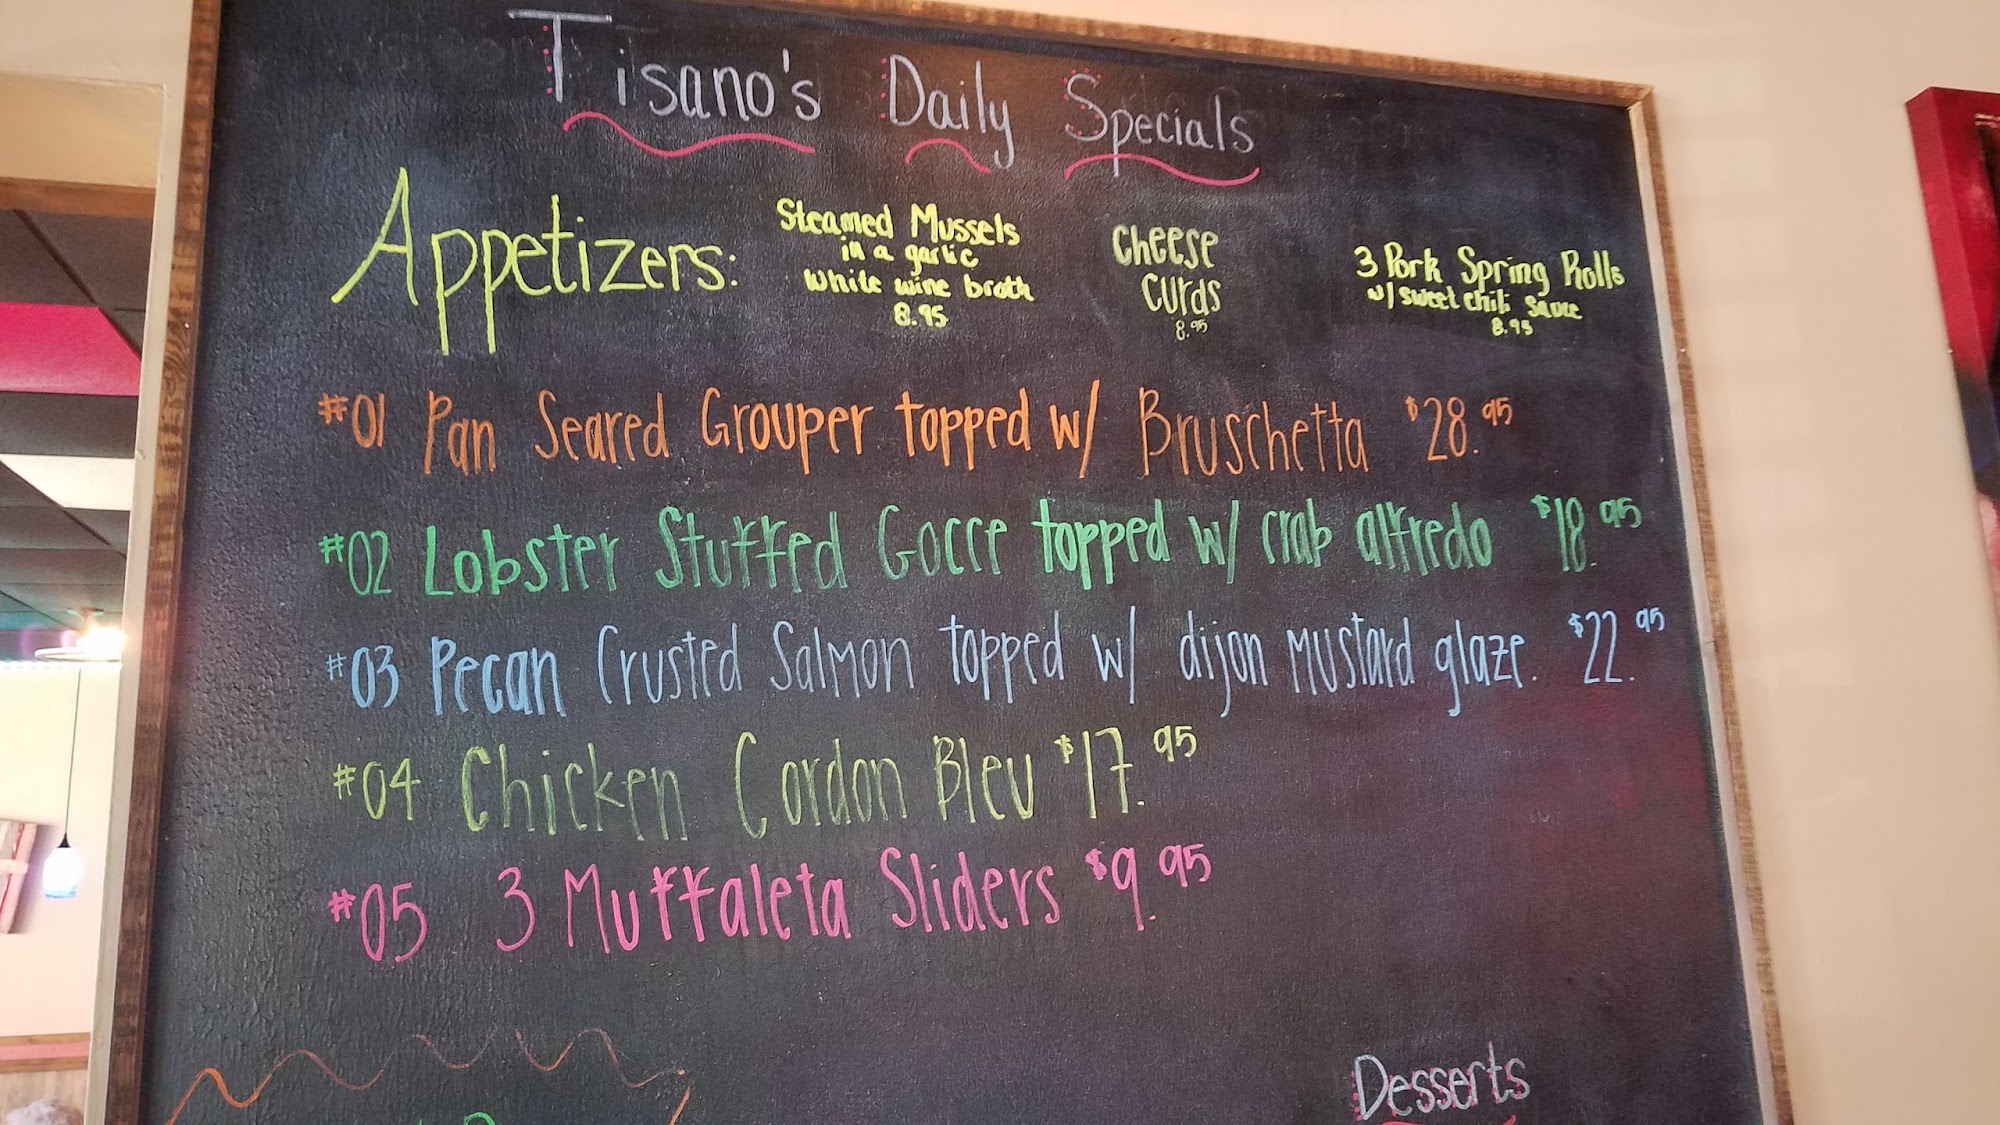 Tisano's Daily Specials
Appetizers:
Steamed Mussels
in a garlic
white wine broth
8.95
Cheese
Curds
8.95
3 Pork Spring Rolls
w/ sweet chili sauce
8.95
#01 Pan Seared Grouper topped w/ Bruschetta $28.95
#02 Lobster Stuffed Gocce topped w/ crab alfredo $18.95
#03 Pecan Crusted Salmon topped w/ dijon mustard glaze. $22.95
#04 Chicken Cordon Bleu $17.95
#05 3 Muffaleta Sliders $9.95
Desserts